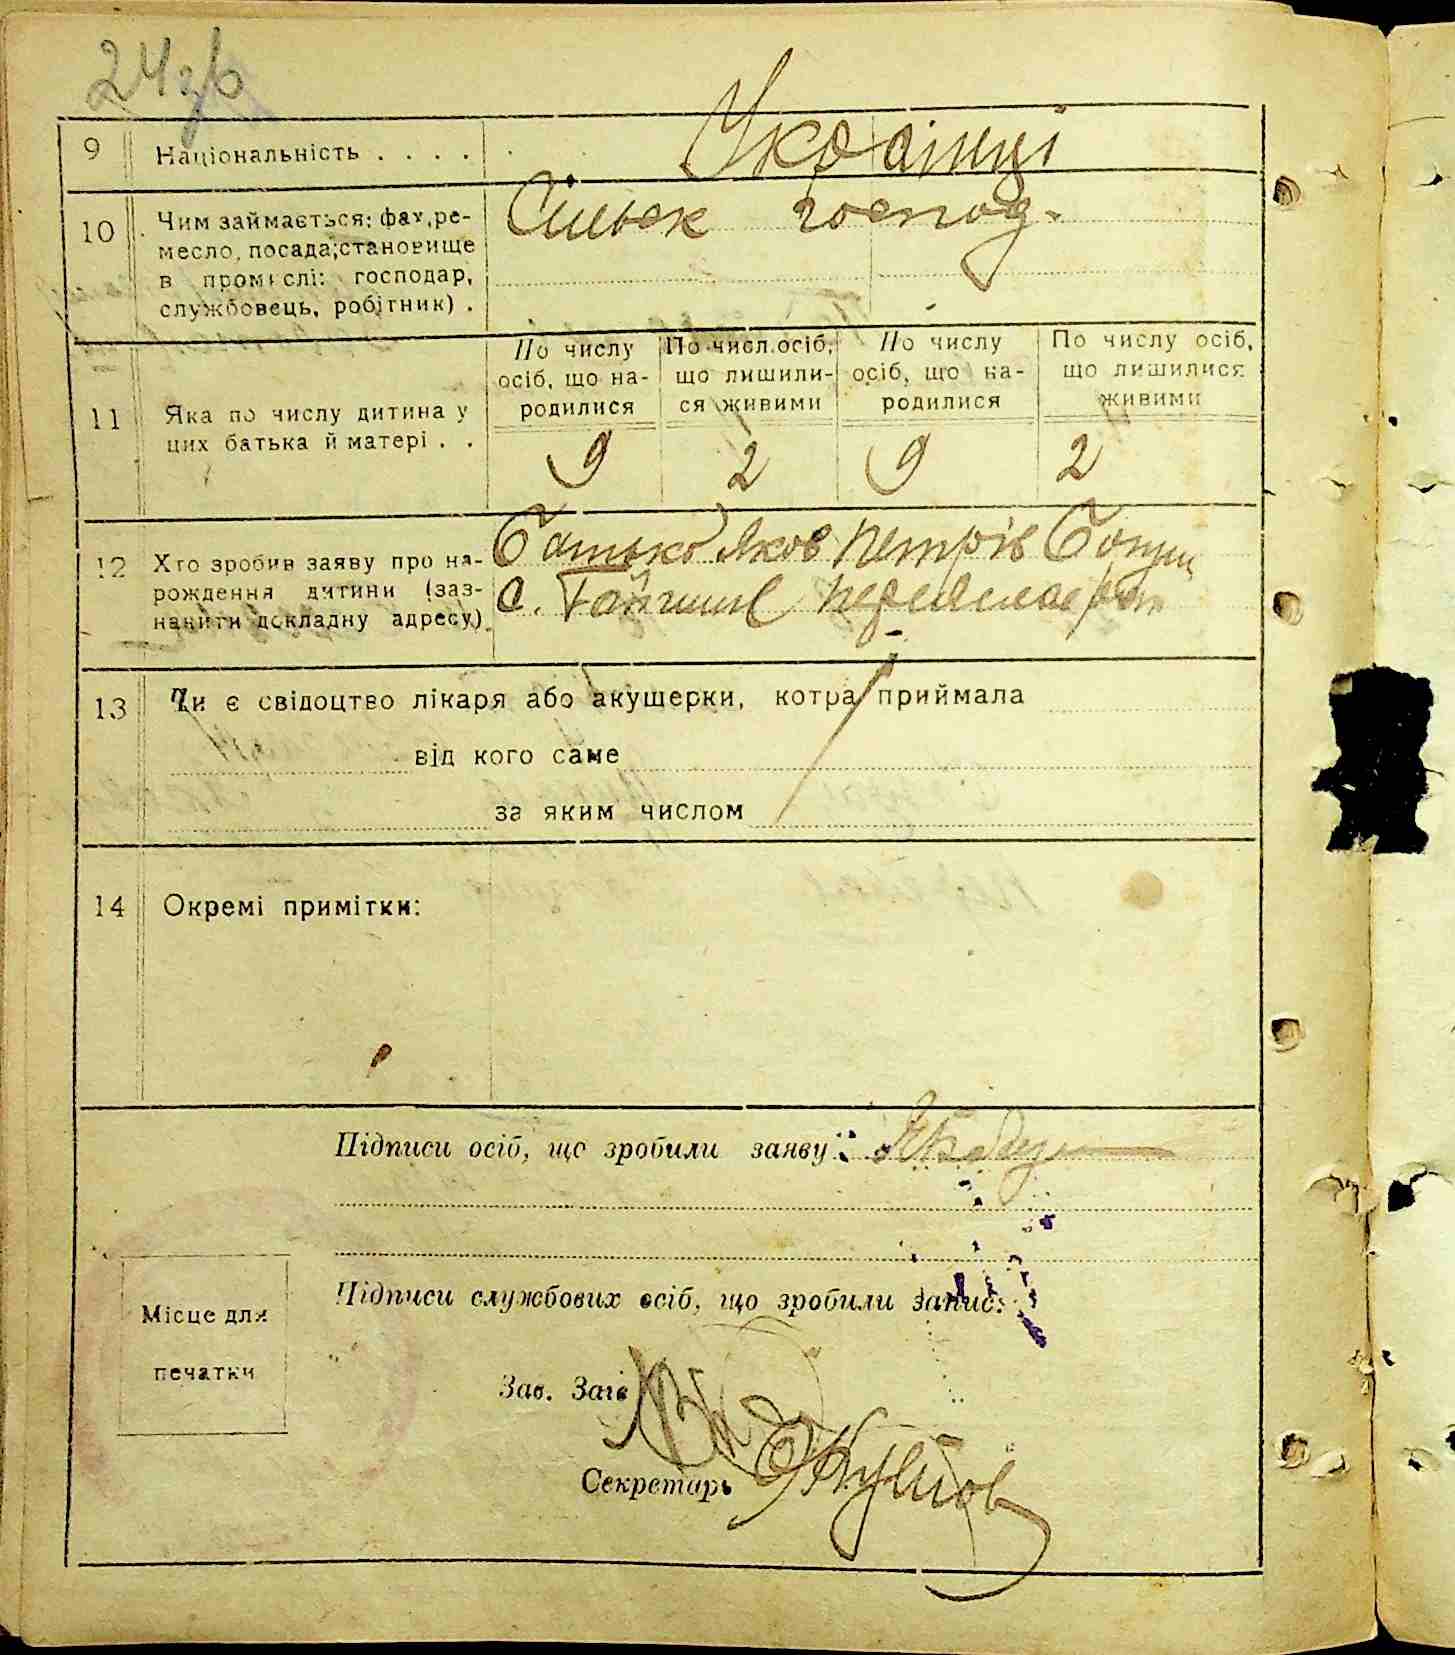 24 зв
9 Національність . . . . Українці
10 Чим займається: фах, ре-
месло, посада; становище
в промислі: господар,
службовець, робітник) .
Сільск господ.
11 Яка по числу дитина у
цих батька й матері . .
По числу
осіб, що на-
родилися
По числ. осіб,
що лишили-
ся живими
По числу
осіб, що на-
родилися
По числу осіб,
що лишилися
живими
9 2 9 2
12 Хто зробив заяву про на-
рождення дитини (заз-
начити докладну адресу)
Батько Яков Петрів
с. Гайшин
13 Чи є свідоцтво лікаря або акушерки, котра приймала
від кого саме
за яким числом
14 Окремі примітки:
Підписи осіб, що зробили заяву:
Підписи службових осіб, що зробили запис:
Місце для
печатки
Зав. Загс
Секретарь